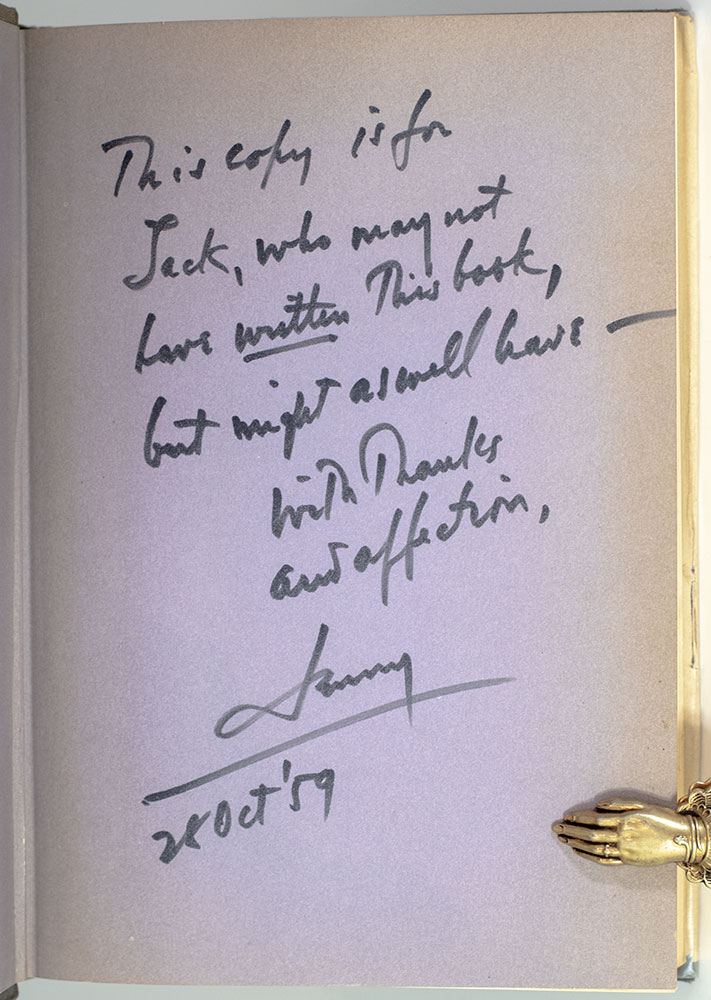 This copy is for
Jack, who may not
have written This book,
but might as well have —
With Thanks
and affection,
Lenny
28 Oct '59